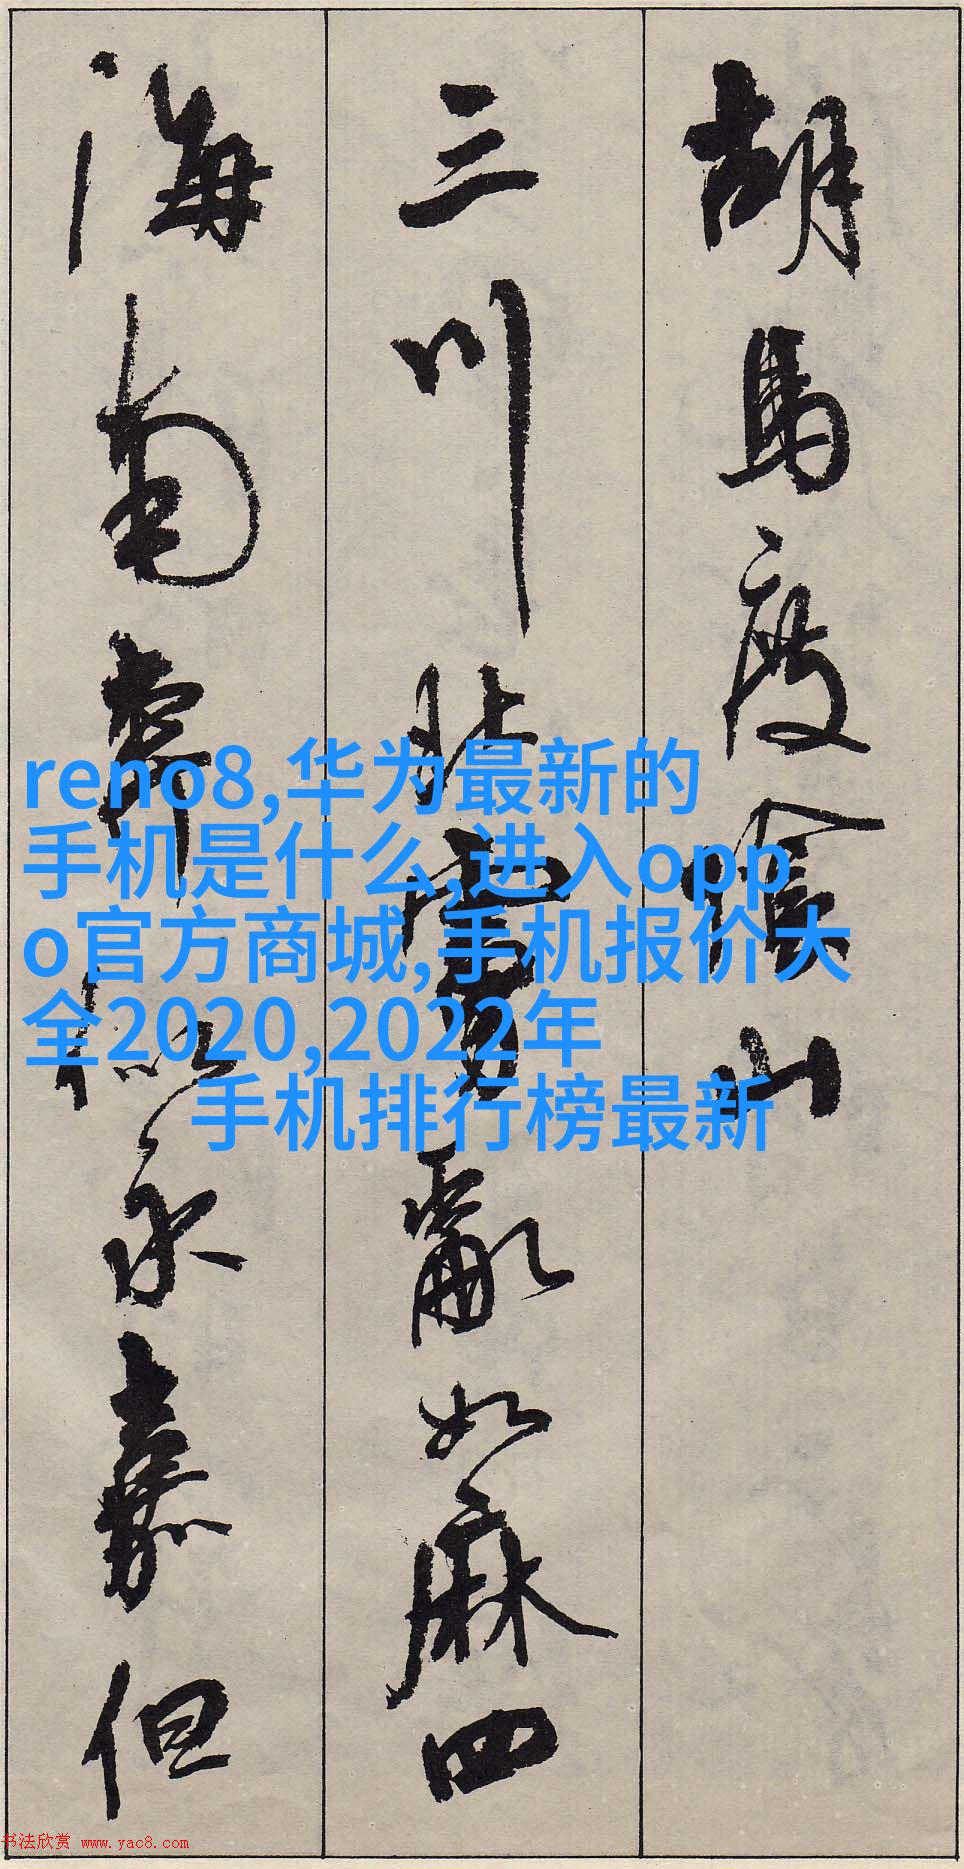 胡馬度陰山
三川北虜亂如麻四
海南奔似永嘉但
reno8,华为最新的
手机是什么,进入opp
o官方商城,手机报价大
全2020,2022年
手机排行榜最新
书法欣赏 www.yac8.com